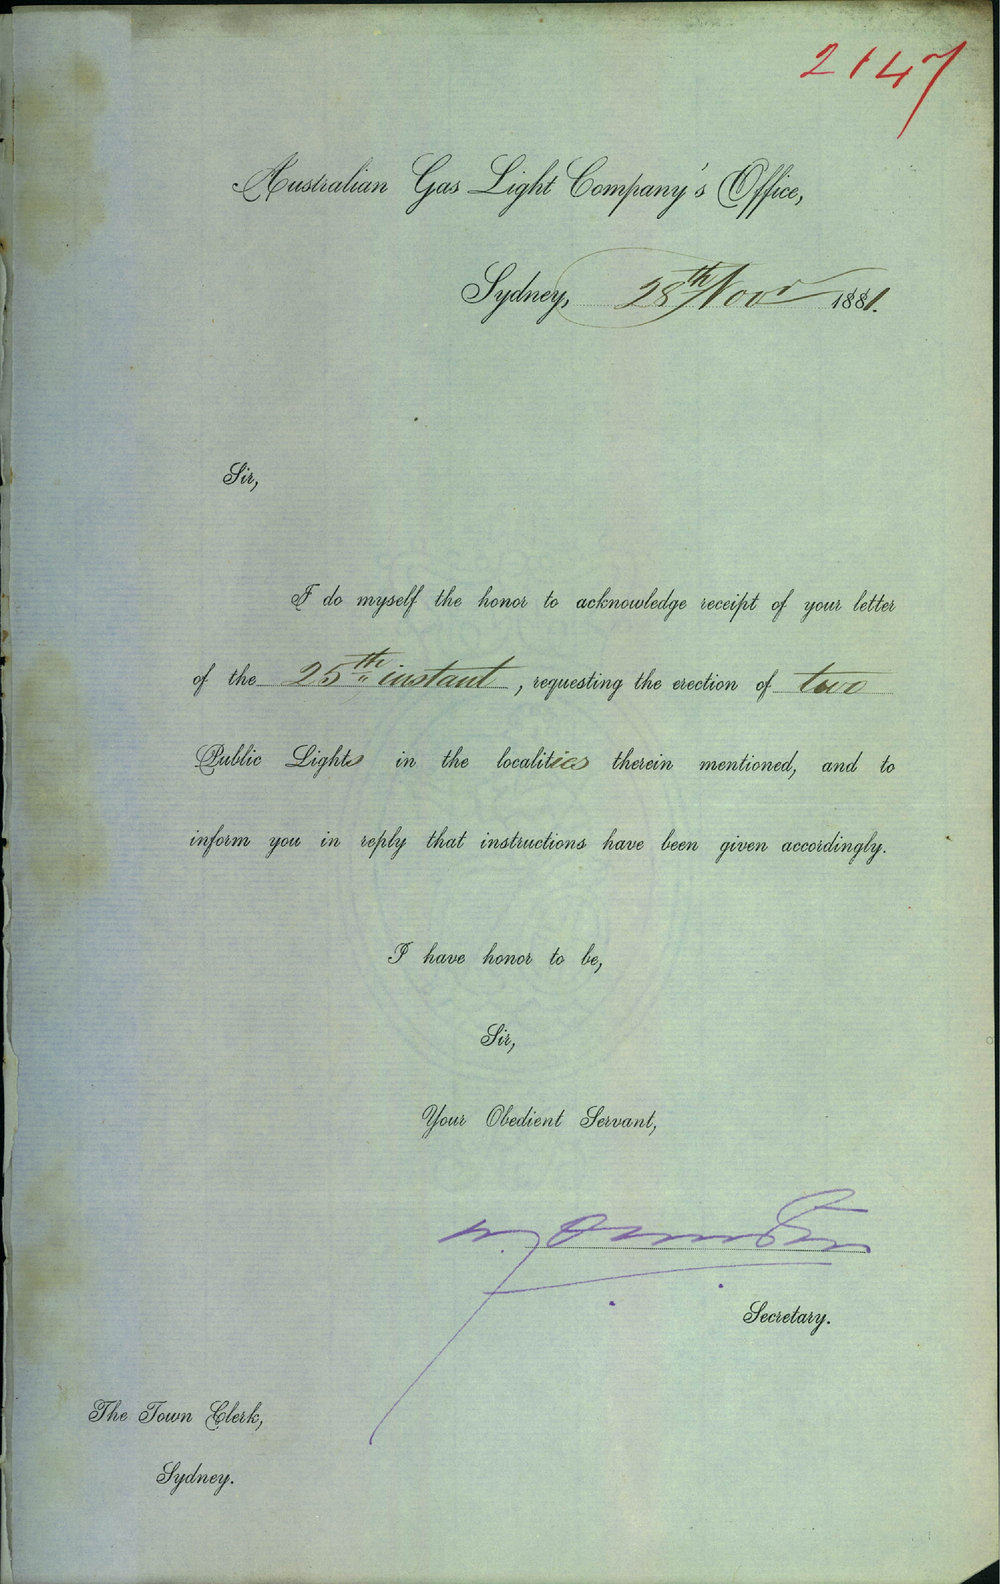 2147
Australian Gas Light Company's Office,
Sydney, 28th Novr 1881.
Sir,
I do myself the honor to acknowledge receipt of your letter
of the 25th instant, requesting the erection of two
Public Lights in the localities therein mentioned, and to
inform you in reply that instructions have been given accordingly.
I have honor to be,
Sir,
Your Obedient Servant,
Secretary.
The Town Clerk,
Sydney.